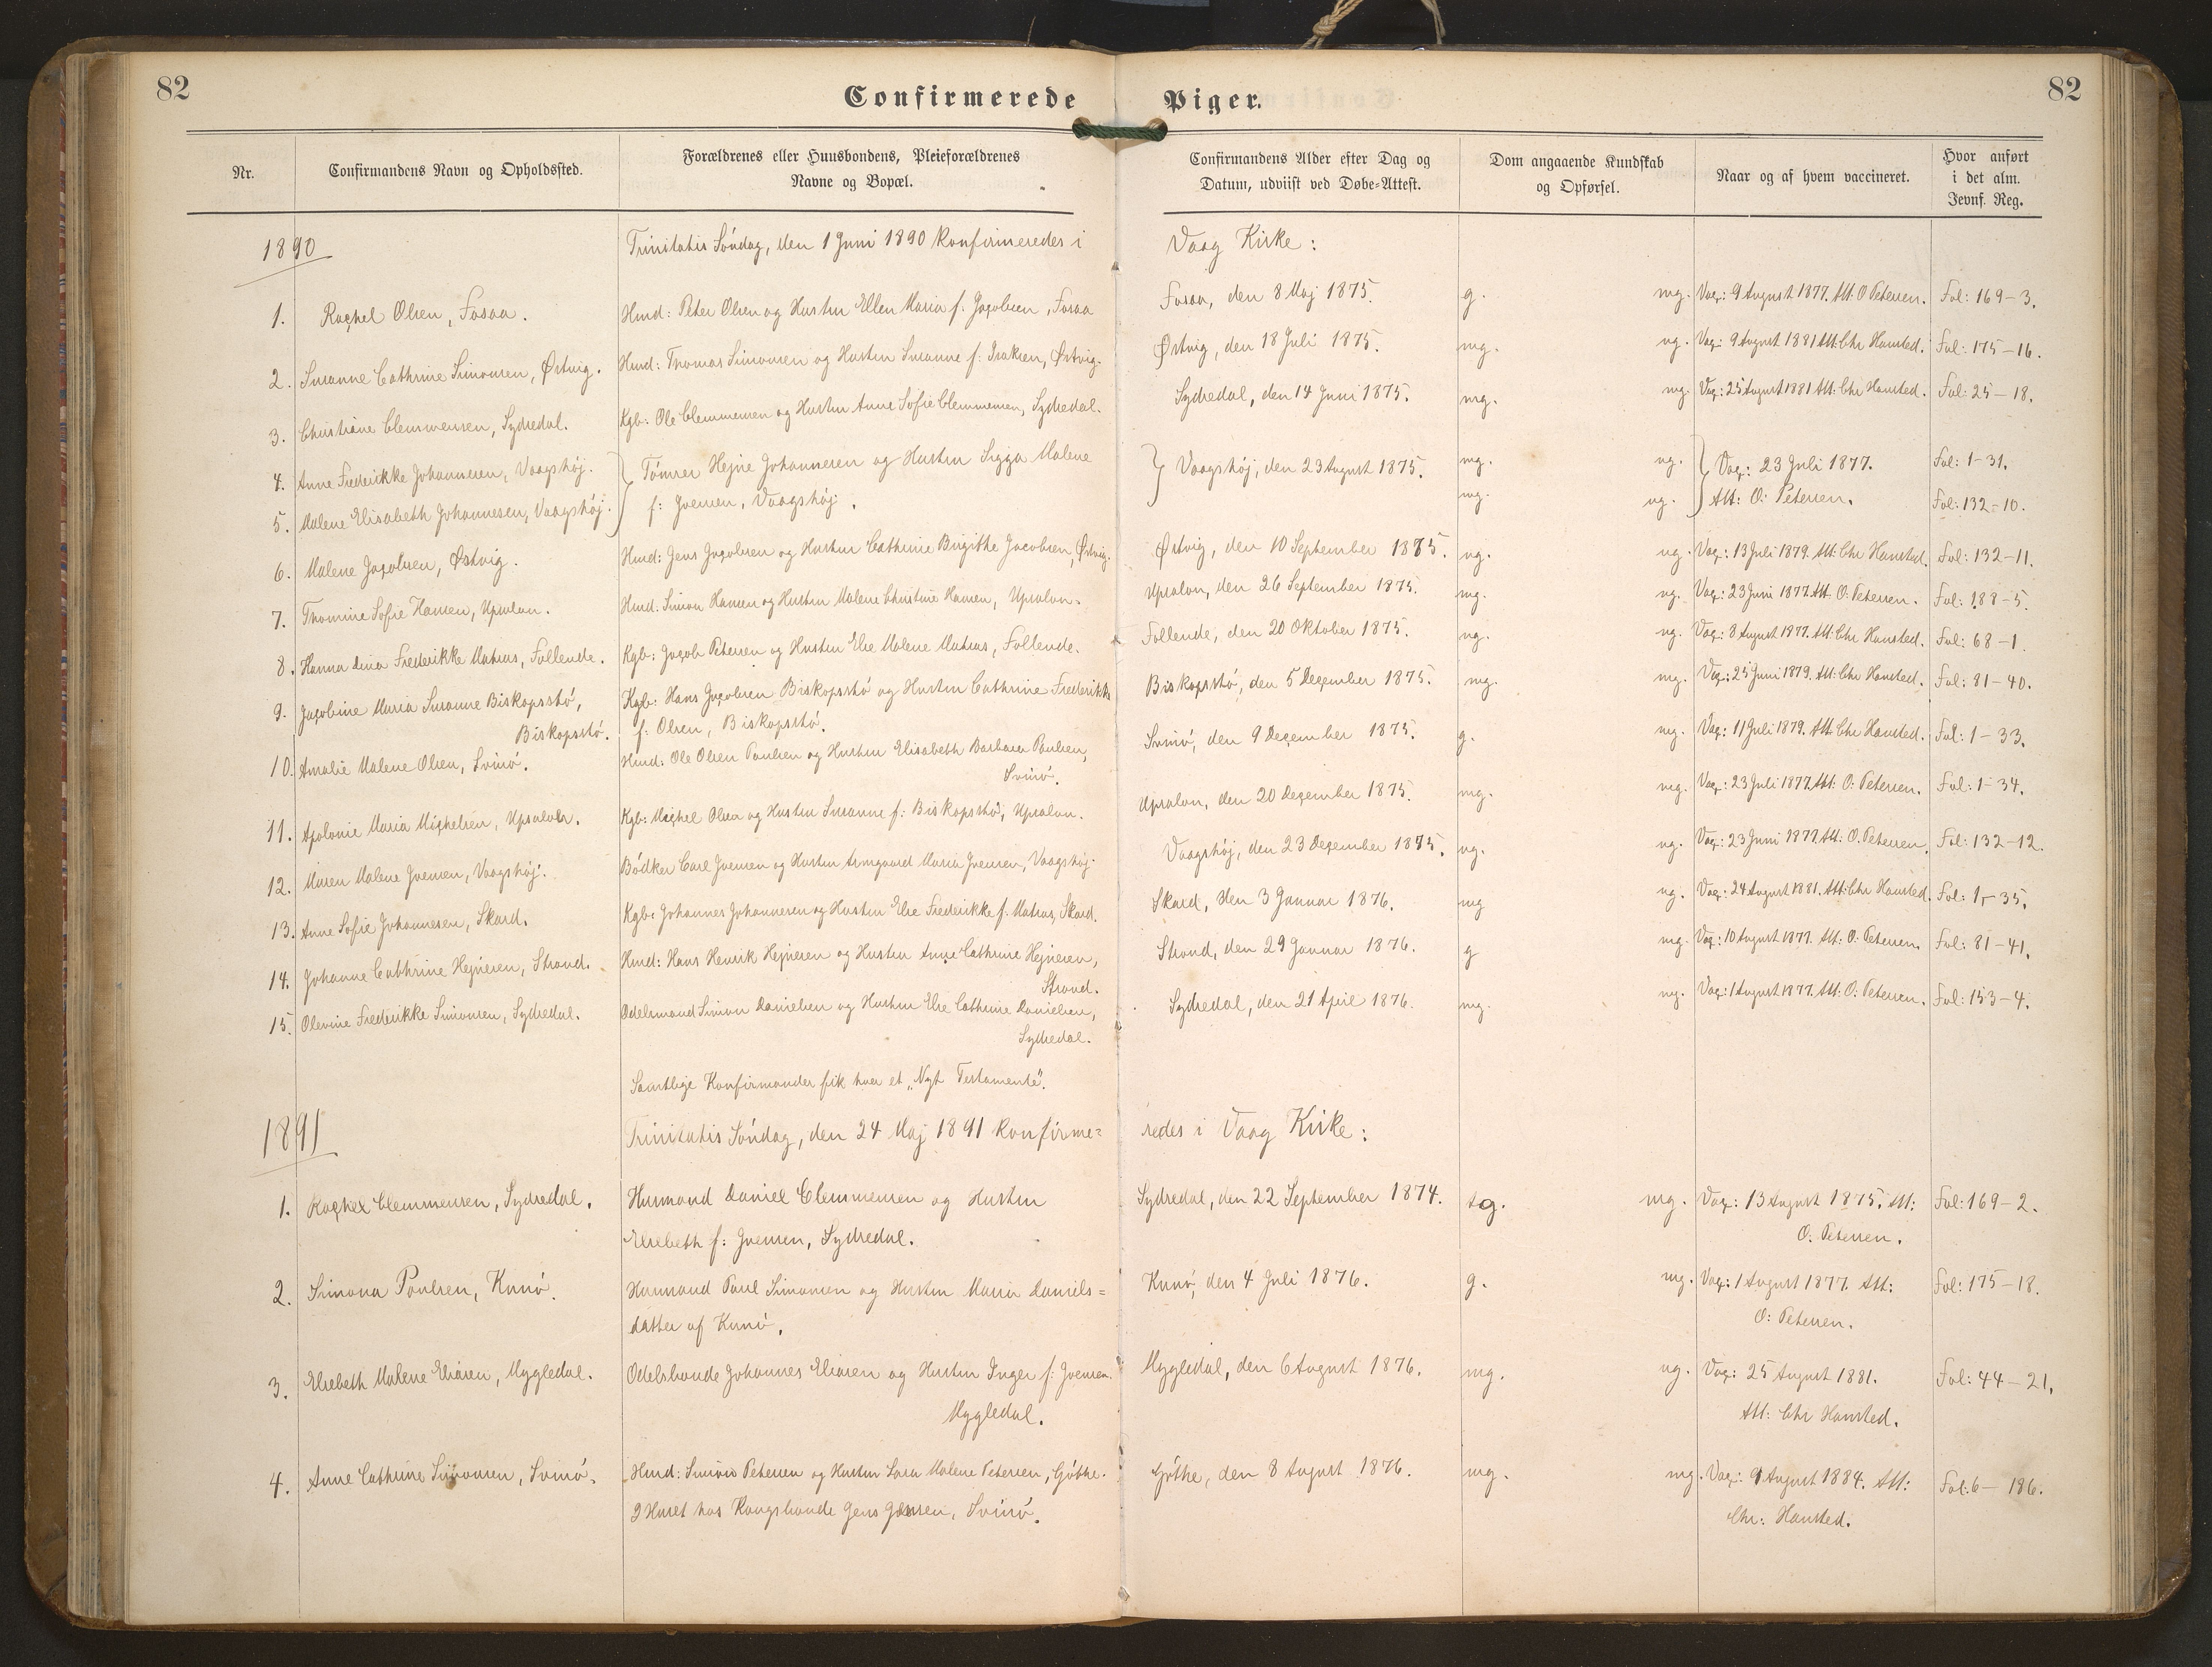 82
Confirmerede Piger.
82
Nr.
Confirmandens Navn og Opholdssted.
Forældrenes eller Huusbondens, Pleieforældrenes
Navne og Bopæl.
Confirmandens Alder efter Dag og
Datum, udviist ved Døbe-Attest.
Dom angaaende Kundskab
og Opførsel.
Naar og af hvem vaccineret.
Hvor anført
i det alm.
Jevnf. Reg.
1890 Trinitatis Söndag, den 1 Juni 1890 Konfirmeredes i Vaag Kirke:
1. Rachel Olsen, Fosaa. Hmd: Peter Olsen og Hustru Ellen Maria f: Jacobsen, Fosaa Fosaa, den 8 Maj 1875. g. mg. Vac: 9 August 1877. Att: O Petersen. Fol: 169-3.
2. Susanne Cathrine Simonsen, Østvig. Hmd: Thomas Simonsen og Hustru Susanne f: Isaksen, Østvig. Østvig, den 18 Juli 1875. mg. ug. Vac: 9 August 1881 Att: Chr Hansted. Fol: 175-16.
3. Christiane Clemmensen, Sydredal. Kgb: Ole Clemmensen og Hustru Anne Sofie Clemmensen, Sydredal. Sydredal, den 14 Juni 1875. mg. mg. Vac: 25 August 1881 Att: Chr Hansted. Fol: 25-18.
4. Anne Frederikke Johannesen, Vaagshöj. Tömrer Hejne Johannesen og Hustru Sigga Malene Vaagshöj, den 23 August 1875. mg. ug. Vac: 23 Juli 1877. Fol: 1-31.
5. Malene Elisabeth Johannesen, Vaagshöj. f: Joensen, Vaagshöj. mg. ug. Att: O: Petersen. Fol: 132-10.
6. Malene Jacobsen, Østvig. Hmd: Jens Jacobsen og Hustru Cathrine Birgithe Jacobsen, Østvig. Østvig, den 10 September 1875. ug. ug. Vac: 13 Juli 1879. Att: Chr Hansted. Fol: 132-11.
7. Thomine Sofie Hansen, Upsalon. Hmd: Simon Hansen og Hustru Malene Christine Hansen, Upsalon. Upsalon, den 26 September 1875. mg. ug. Vac: 23 Juni 1877. Att: O: Petersen. Fol: 188-5.
8. Hanna Lina Frederikke Matras, Follende. Kgb: Jacob Petersen og Hustru Else Malene Matras, Follende. Follende, den 20 Oktober 1875. ug. ug. Vac: 8 August 1877. Att: Chr Hansted. Fol: 68-1.
9. Jacobine Maria Susanne Biskopsstö, Kgb: Hans Jacobsen Biskopsstö og Hustru Cathrine Frederikke Biskopstö, den 5 December 1875. mg. mg. Vac: 25 Juni 1879. Att: Chr Hansted. Fol: 81-40.
Biskopsstö. f: Olsen, Biskopsstö.
10. Amalie Malene Olsen, Svinö. Hmd: Ole Olsen Poulsen og Hustru Elisabeth Barbara Poulsen, Svinö, den 9 December 1875. g. mg. Vac: 11 Juli 1879. Att: Chr Hansted. Fol: 1-33.
Svinö.
11. Apolonie Maria Michelsen, Upsalon. Kgb: Michel Olsen og Hustru Susanne f: Biskopstö, Upsalon. Upsalon, den 20 December 1875. mg. mg. Vac: 23 Juli 1877. Att: O: Petersen. Fol: 1-34.
12. Maren Malene Joensen, Vaagshöj. Bödker Carl Joensen og Hustru Armgaard Maria Joensen, Vaagshöj. Vaagshöj, den 23 December 1875. ug. ug. Vac: 23 Juni 1877. Att: O. Petersen. Fol: 132-12.
13. Anne Sofie Johannesen, Skard. Kgb: Johannes Johannesen og Hustru Else Frederikke f. Matras, Skard. Skard, den 3 Januar 1876. mg ug. Vac: 24 August 1881. Att: Chr Hansted. Fol: 1-35.
14. Johanne Cathrine Hejnesen, Strand. Hmd: Hans Henrik Hejnesen og Hustru Anne Cathrine Hejnesen, Strand, den 29 Januar 1876. g mg. Vac: 10 August 1877. Att: O: Petersen. Fol: 81-41.
Strand.
15. Olevine Frederikke Simonsen, Sydredal. Odelsmand Simon Danielsen og Hustru Else Cathrine Danielsen, Sydredal, den 21 April 1876. mg. mg. Vac: 1 August 1877. Att: O: Petersen. Fol: 153-4.
Sydredal.
Samtlige Konfirmander fik hver et „Nyt Testamente".
1891 Trinitatis Söndag, den 24 Maj 1891 Konfirme=redes i Vaag Kirke:
1. Rachel Clemmensen, Sydredal. Husmand Daniel Clemmensen og Hustru Sydredal, den 22 September 1874. tg. mg. Vac: 13 August 1875. Att: Fol: 169-2.
Elsebeth f: Joensen, Sydredal. O: Petersen.
2. Simona Poulsen, Kunö. Husmand Poul Simonsen og Hustru Maria Daniels= Kunö, den 4 Juli 1876. g. mg. Vac: 1 August 1877. Att: Fol: 175-18.
datter af Kunö. O: Petersen.
3. Elsebeth Malene Eliasen, Mygledal. Odelsbonde Johannes Eliasen og Hustru Inger f: Joensen. Mygledal, den 6 August 1876. mg. ug. Vac: 25 August 1881. Fol: 44-21.
Mygledal. Att: Chr Hansted.
4. Anne Cathrine Simonsen, Svinö. Hmd: Simon Petersen og Hustru Sara Malene Petersen, Göthe. Göthe, den 8 August 1876. mg. mg. Vac: 9 August 1884. Att: Fol: 6-186.
I Huset hos Kongsbonde Jens Jensen, Svinö. Chr: Hansted.